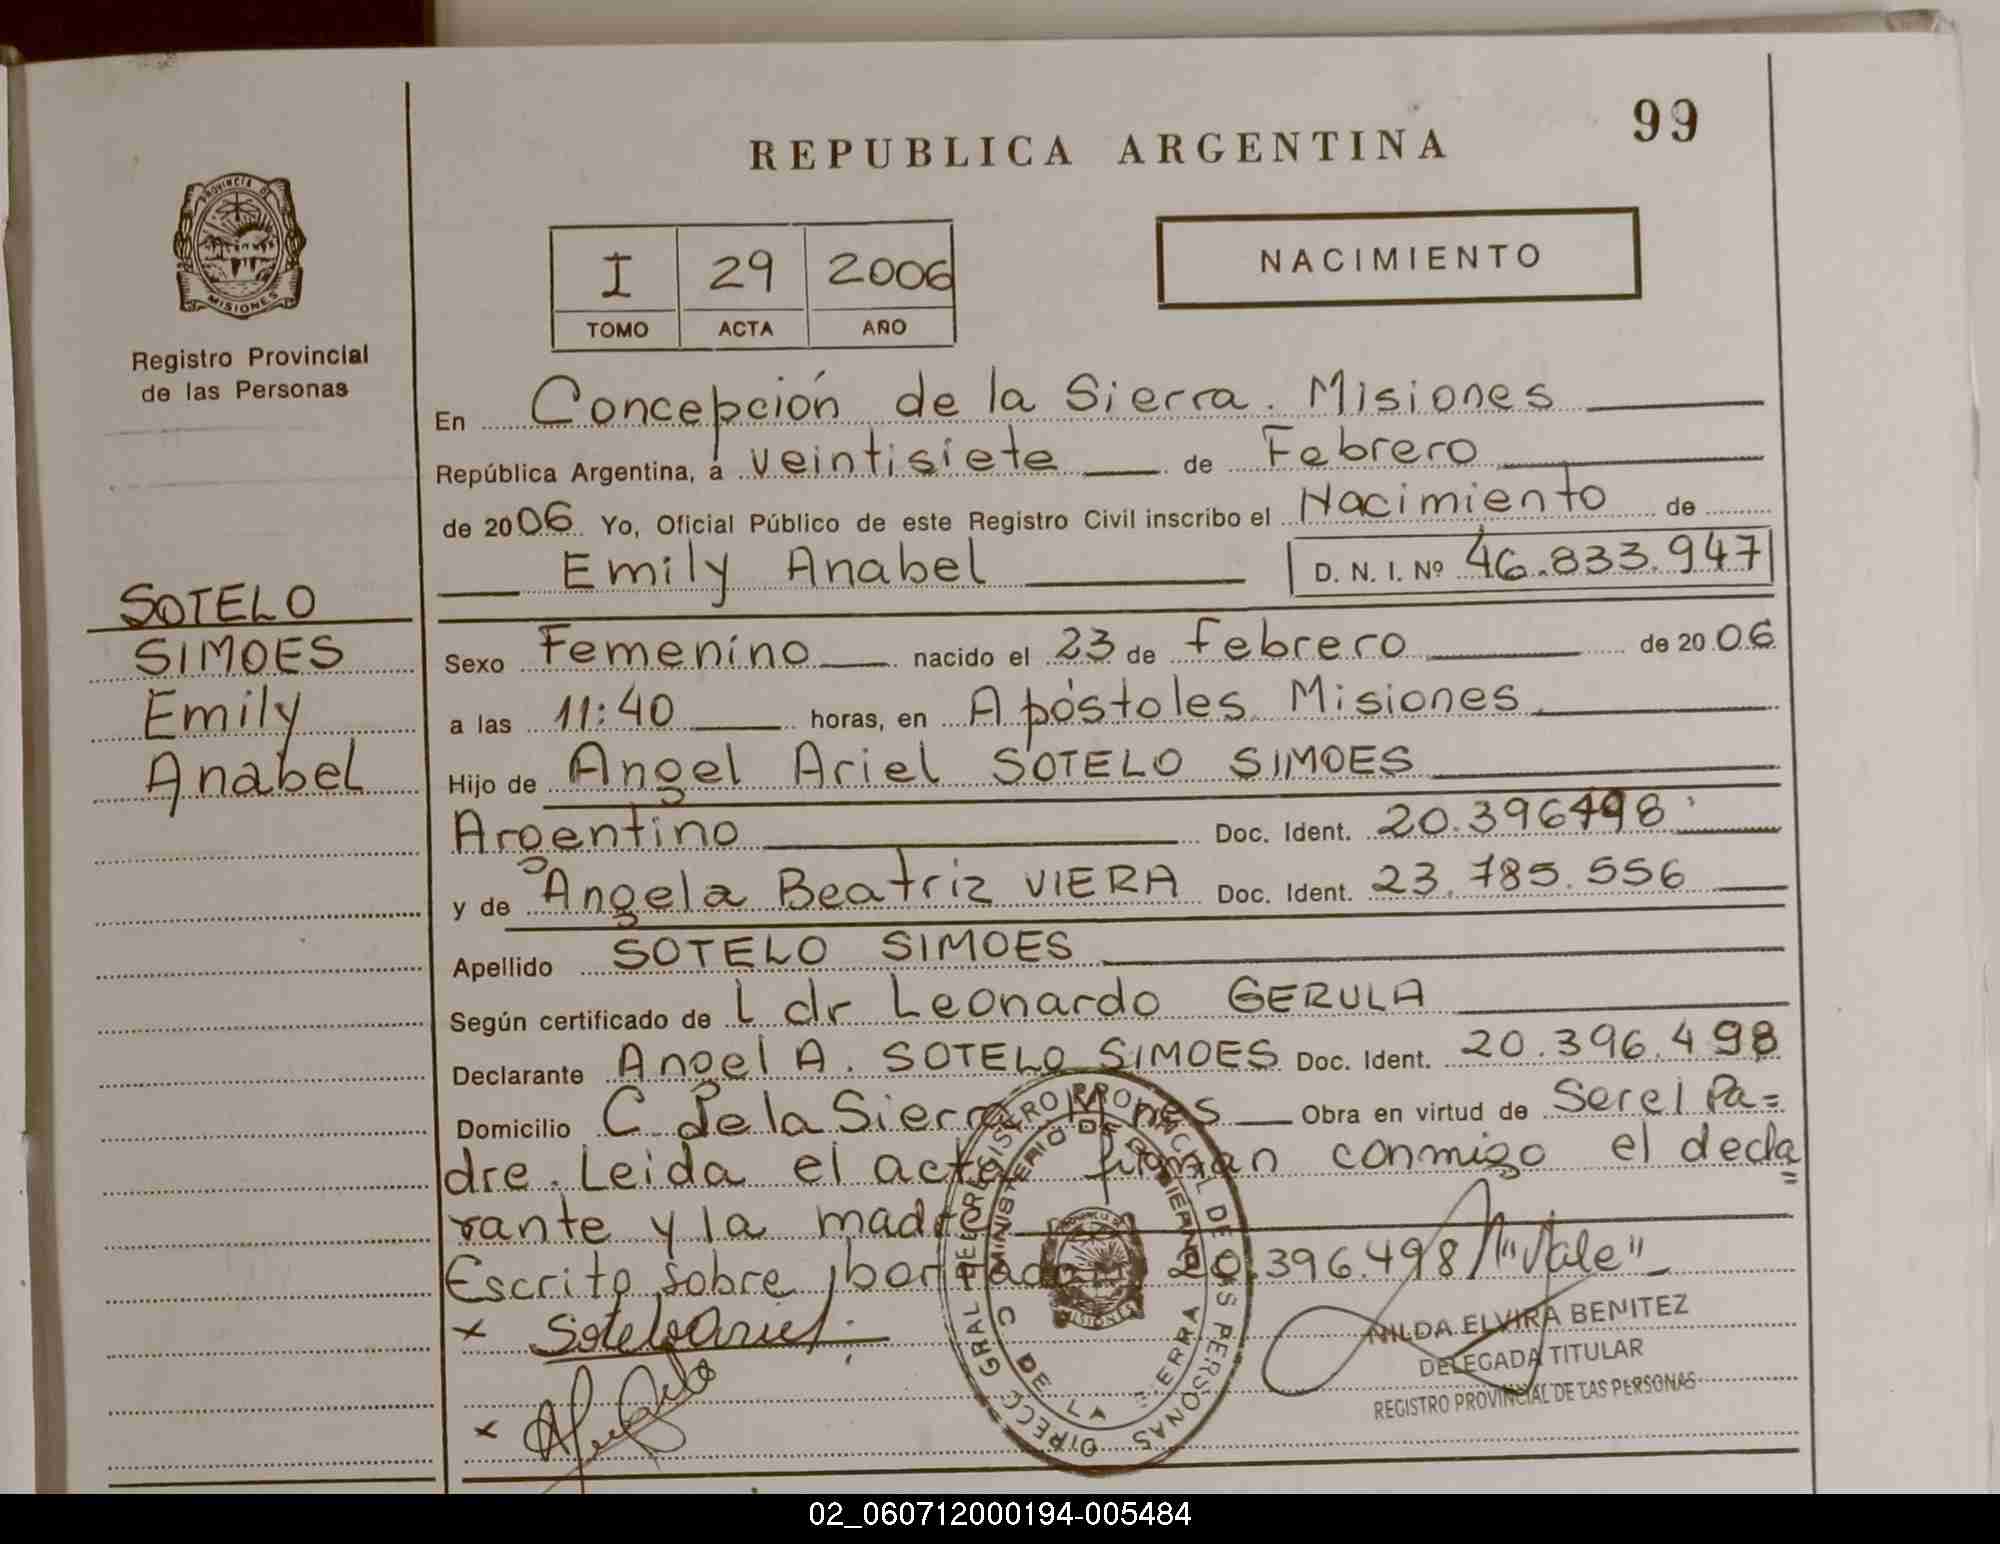 99
REPUBLICA ARGENTINA
PROVINCIA DE
MISIONES
Registro Provincial
de las Personas
I 29 2006
TOMO ACTA AÑO
NACIMIENTO
En Concepción de la Sierra. Misiones
República Argentina, a veintisiete de Febrero
de 2006 Yo, Oficial Público de este Registro Civil inscribo el Nacimiento de
Emily Anabel D. N. I. Nº 46.833.947
SOTELO
SIMOES
Emily
Anabel
Sexo Femenino nacido el 23 de Febrero de 2006
a las 11:40 horas, en Apóstoles Misiones
Hijo de Angel Ariel SOTELO SIMOES
Argentino Doc. Ident. 20.396498
y de Angela Beatriz VIERA Doc. Ident. 23.785.556
Apellido SOTELO SIMOES
Según certificado de L dr Leonardo GERULA
Declarante Angel A. SOTELO SIMOES Doc. Ident. 20.396.498
Domicilio C de la Sierra Mnes Obra en virtud de Ser el Pa=
dre. Leida el acta firman conmigo el decla=
rante y la madre
Escrito sobre borrado 20.396.498 "Vale"
x Sotelo Ariel
x
DIRECC. GRAL DEL REGISTRO PROVINCIAL DE LAS PERSONAS
MINISTERIO DE GOBIERNO
C. DE LA SIERRA
NILDA ELVIRA BENITEZ
DELEGADA TITULAR
REGISTRO PROVINCIAL DE LAS PERSONAS
02_060712000194-005484